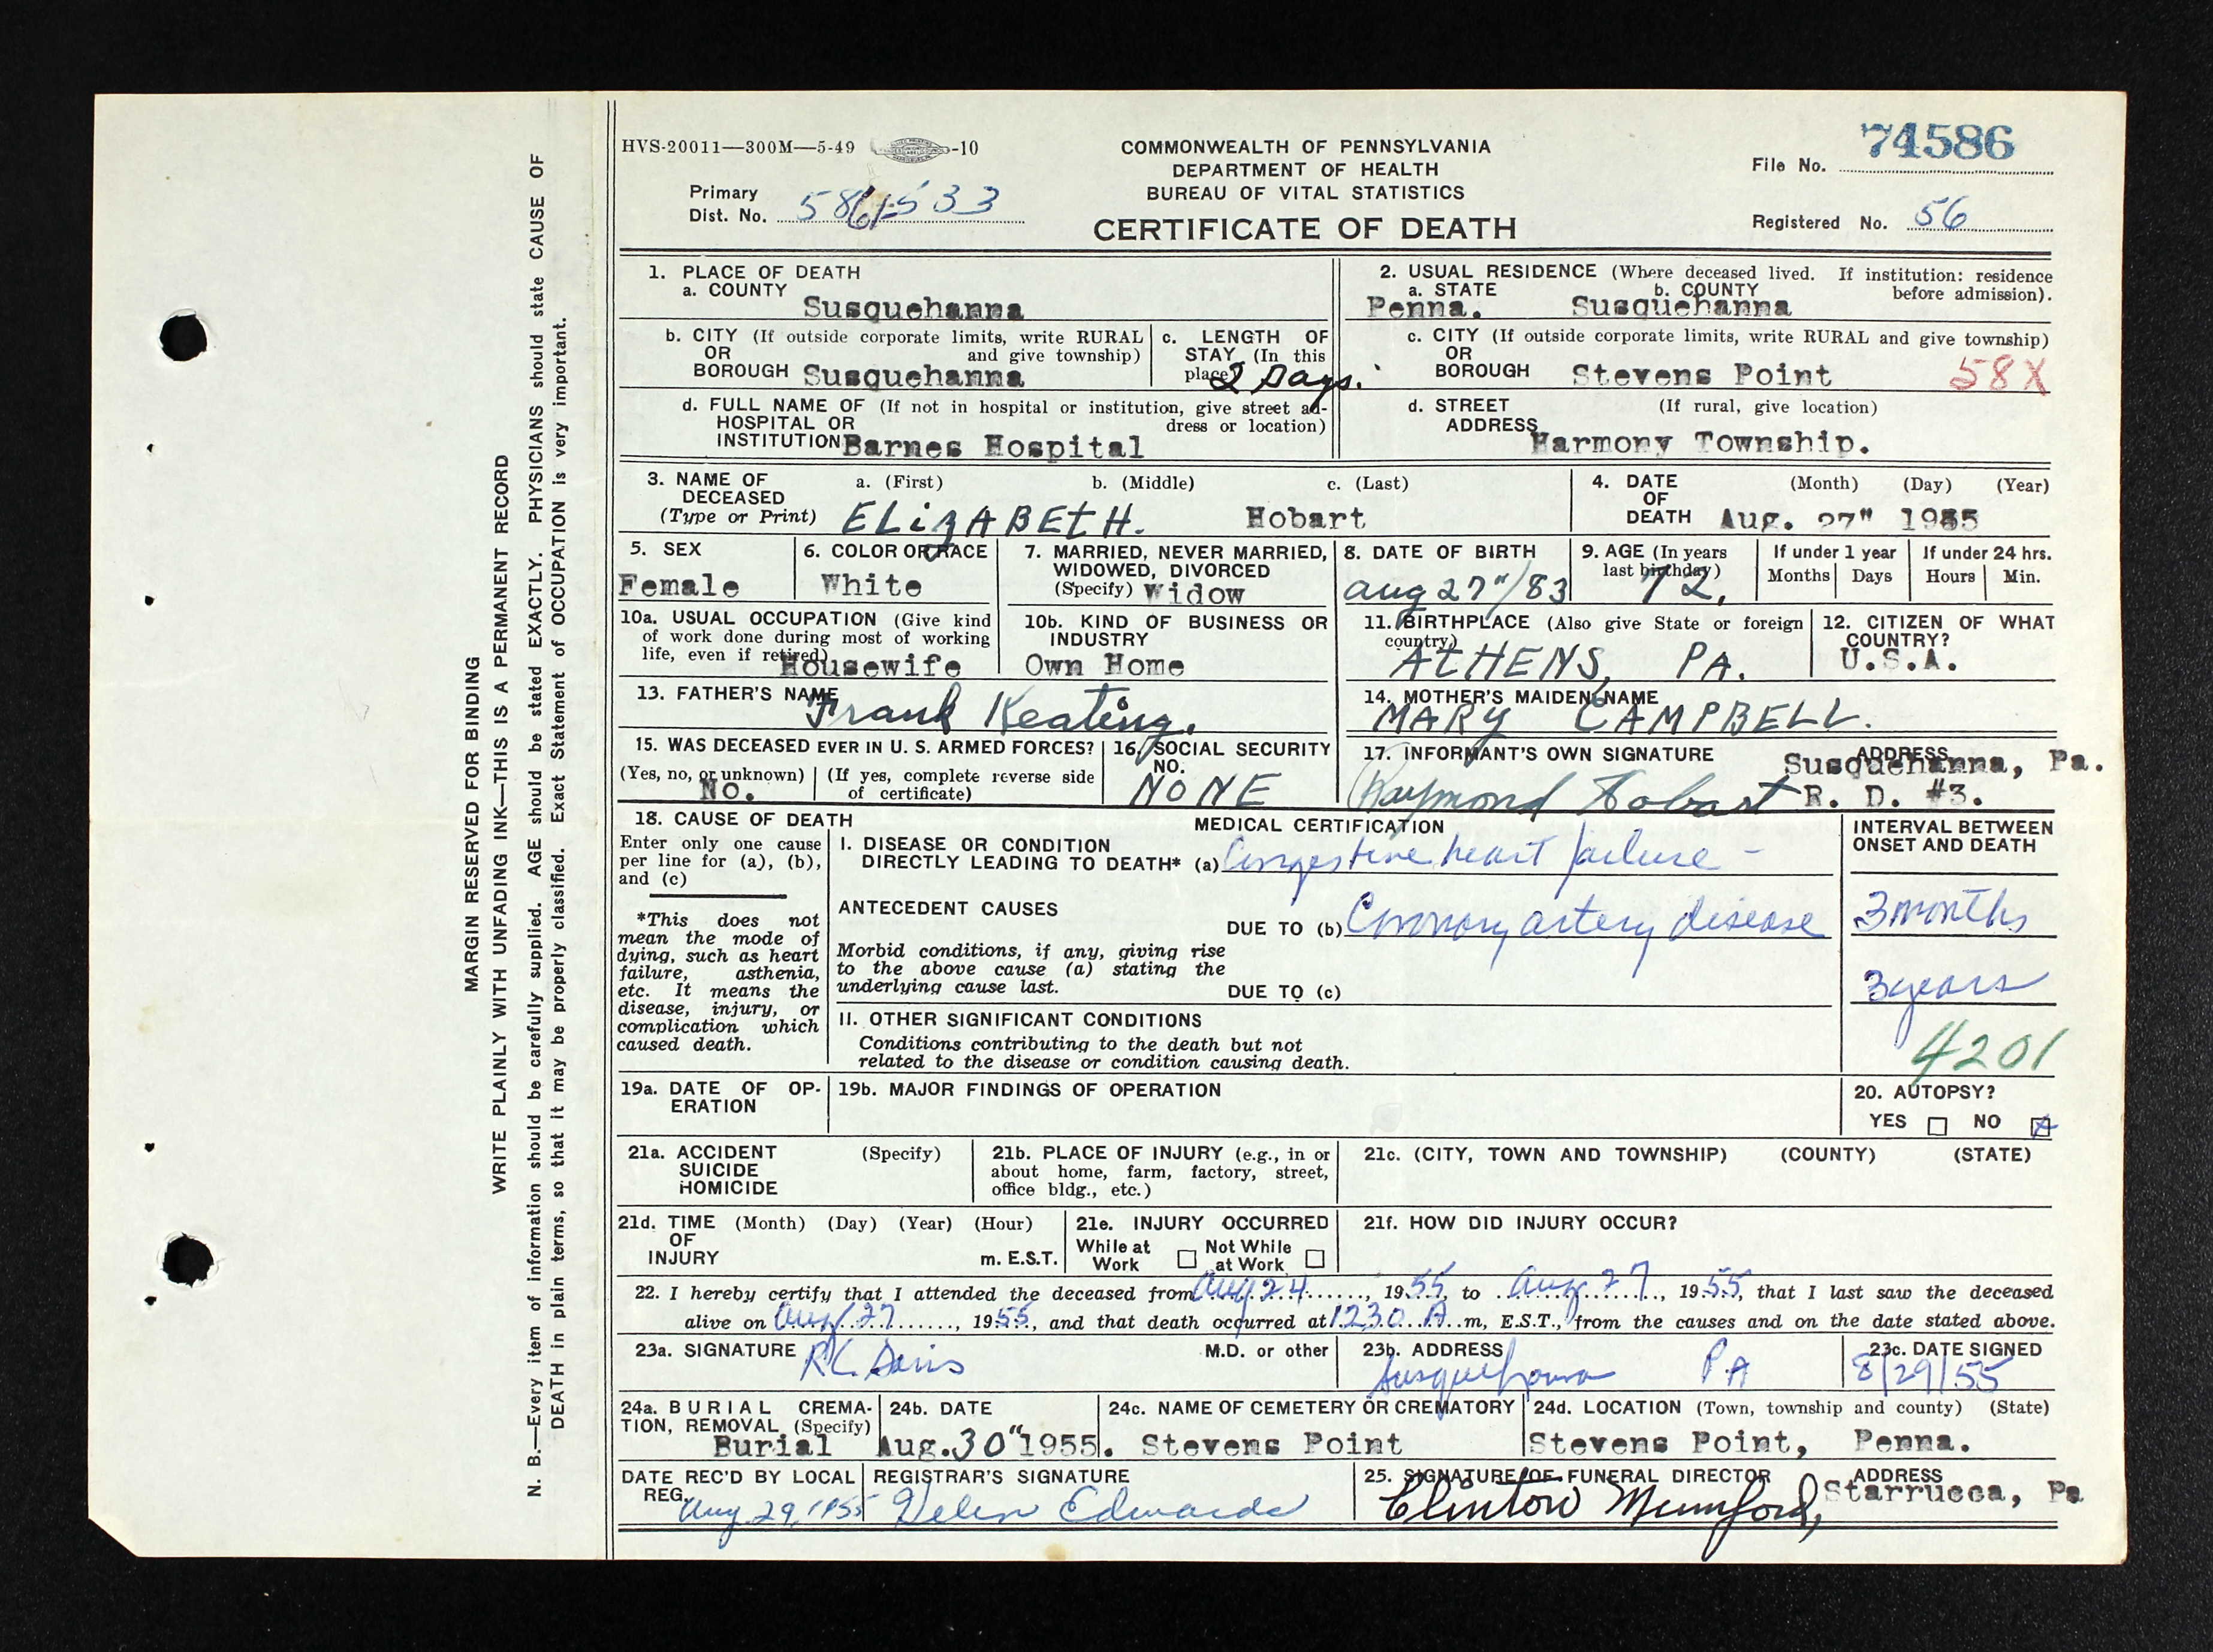 HVS-20011—300M—5-49 -10
COMMONWEALTH OF PENNSYLVANIA
DEPARTMENT OF HEALTH
BUREAU OF VITAL STATISTICS
CERTIFICATE OF DEATH
File No. 74586
Primary
Dist. No. 533
Registered No. 56
1. PLACE OF DEATH
a. COUNTY Susquehanna
2. USUAL RESIDENCE (Where deceased lived. If institution: residence before admission).
a. STATE Penna. b. COUNTY Susquehanna
b. CITY (If outside corporate limits, write RURAL
OR and give township)
BOROUGH Susquehanna
c. LENGTH OF
STAY (In this
place) 2 Days.
c. CITY (If outside corporate limits, write RURAL and give township)
OR
BOROUGH Stevens Point 58X
d. FULL NAME OF (If not in hospital or institution, give street ad-
HOSPITAL OR dress or location)
INSTITUTION Barnes Hospital
d. STREET (If rural, give location)
ADDRESS Harmony Township.
3. NAME OF a. (First) b. (Middle) c. (Last)
DECEASED
(Type or Print) ELizABEtH. Hobart
4. DATE (Month) (Day) (Year)
OF
DEATH Aug. 27" 1955
5. SEX
Female
6. COLOR OR RACE
White
7. MARRIED, NEVER MARRIED,
WIDOWED, DIVORCED
(Specify) Widow
8. DATE OF BIRTH
Aug 27"/83
9. AGE (In years
last birthday)
72.
If under 1 year
Months Days
If under 24 hrs.
Hours Min.
10a. USUAL OCCUPATION (Give kind
of work done during most of working
life, even if retired)
Housewife
10b. KIND OF BUSINESS OR
INDUSTRY
Own Home
11. BIRTHPLACE (Also give State or foreign
country)
AtHENS, PA.
12. CITIZEN OF WHAT
COUNTRY?
U.S.A.
13. FATHER'S NAME
Frank Keating.
14. MOTHER'S MAIDEN NAME
MARy CAMPBELL.
15. WAS DECEASED EVER IN U. S. ARMED FORCES?
(Yes, no, or unknown) (If yes, complete reverse side
No. of certificate)
16. SOCIAL SECURITY
NO.
NONE
17. INFORMANT'S OWN SIGNATURE ADDRESS
Susquehanna, Pa.
Raymond Hobart R. D. #3.
18. CAUSE OF DEATH
Enter only one cause
per line for (a), (b),
and (c)
*This does not
mean the mode of
dying, such as heart
failure, asthenia,
etc. It means the
disease, injury, or
complication which
caused death.
MEDICAL CERTIFICATION
I. DISEASE OR CONDITION
DIRECTLY LEADING TO DEATH* (a) Congestive heart failure -
ANTECEDENT CAUSES
DUE TO (b) Coronary artery disease
Morbid conditions, if any, giving rise
to the above cause (a) stating the
underlying cause last.
DUE TO (c)
II. OTHER SIGNIFICANT CONDITIONS
Conditions contributing to the death but not
related to the disease or condition causing death.
INTERVAL BETWEEN
ONSET AND DEATH
3 months
3 years
4201
19a. DATE OF OP-
ERATION
19b. MAJOR FINDINGS OF OPERATION
20. AUTOPSY?
YES NO
21a. ACCIDENT (Specify)
SUICIDE
HOMICIDE
21b. PLACE OF INJURY (e.g., in or
about home, farm, factory, street,
office bldg., etc.)
21c. (CITY, TOWN AND TOWNSHIP) (COUNTY) (STATE)
21d. TIME (Month) (Day) (Year) (Hour)
OF
INJURY m. E.S.T.
21e. INJURY OCCURRED
While at Not While
Work at Work
21f. HOW DID INJURY OCCUR?
22. I hereby certify that I attended the deceased from Aug 24, 1955, to Aug 27, 1955, that I last saw the deceased
alive on Aug 27, 1955, and that death occurred at 1230 A m, E.S.T., from the causes and on the date stated above.
23a. SIGNATURE R.C. Davis M.D. or other
23b. ADDRESS
Susquehanna PA
23c. DATE SIGNED
8/29/55
24a. BURIAL CREMA-
TION, REMOVAL (Specify)
Burial
24b. DATE
Aug. 30" 1955.
24c. NAME OF CEMETERY OR CREMATORY
Stevens Point
24d. LOCATION (Town, township and county) (State)
Stevens Point, Penna.
DATE REC'D BY LOCAL
REG.
Aug. 29, 1955
REGISTRAR'S SIGNATURE
Helen Edwards
25. SIGNATURE OF FUNERAL DIRECTOR ADDRESS
Clinton Mumford, Starrucca, Pa
MARGIN RESERVED FOR BINDING
WRITE PLAINLY WITH UNFADING INK—THIS IS A PERMANENT RECORD
N. B.—Every item of information should be carefully supplied. AGE should be stated EXACTLY. PHYSICIANS should state CAUSE OF
DEATH in plain terms, so that it may be properly classified. Exact Statement of OCCUPATION is very important.